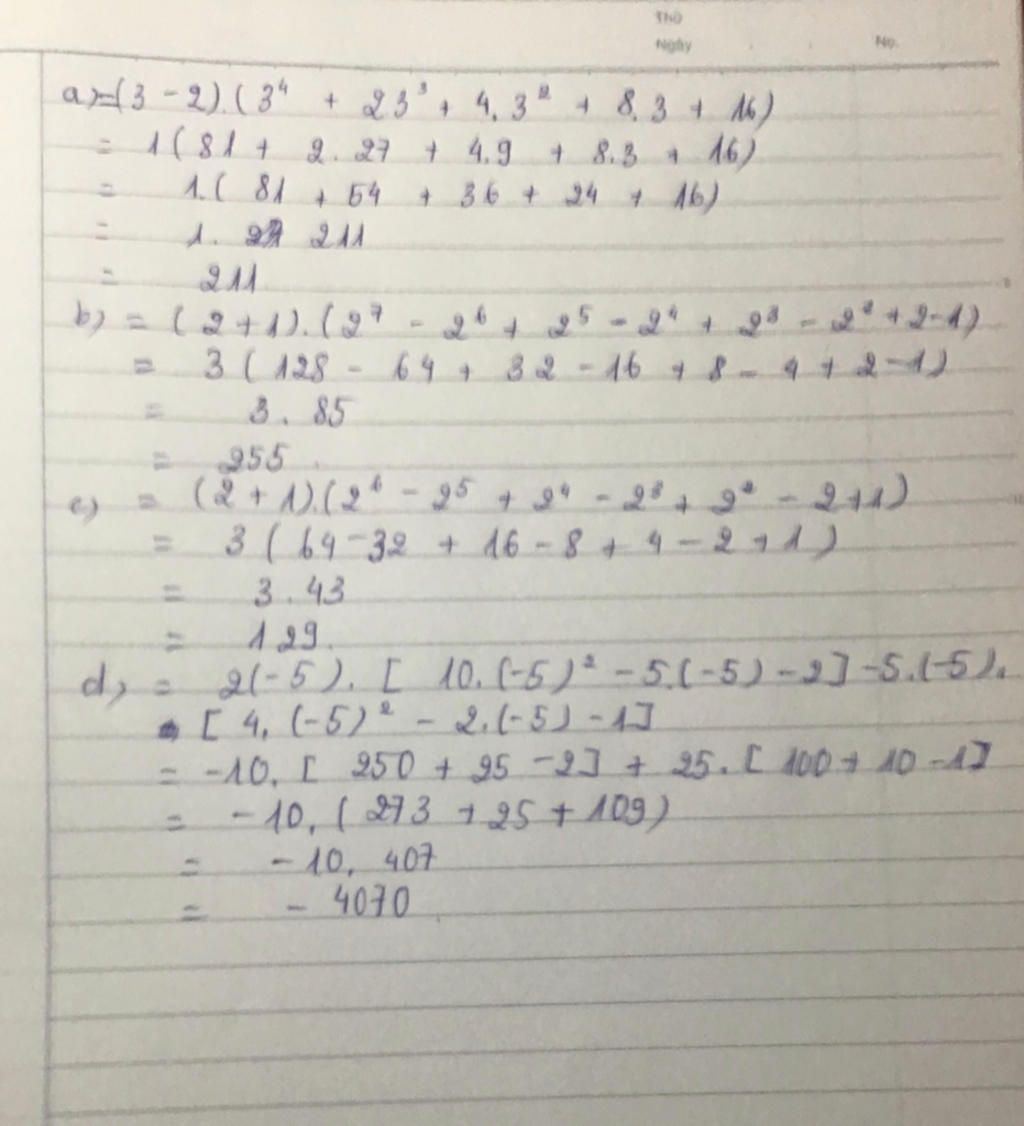 Thứ
Ngày No.
a) = (3 - 2).(3⁴ + 23³ + 4.3² + 8.3 + 16)
= 1(81 + 2.27 + 4.9 + 8.3 + 16)
= 1.(81 + 54 + 36 + 24 + 16)
= 1. 211
= 211
b) = (2+1).(2⁷ - 2⁶ + 2⁵ - 2⁴ + 2³ - 2² + 2-1)
= 3(128 - 64 + 32 - 16 + 8 - 4 + 2 - 1)
= 3.85
= 255
c) = (2+1).(2⁶ - 2⁵ + 2⁴ - 2³ + 2² - 2+1)
= 3(64-32 + 16 - 8 + 4 - 2 + 1)
= 3.43
= 129.
d) = 2(-5).[10.(-5)² - 5.(-5) - 2] - 5.(-5).
[4.(-5)² - 2.(-5) - 1]
= -10.[250 + 25 - 2] + 25.[100 + 10 - 1]
= -10.(273 + 25 + 109)
= -10.407
= - 4070